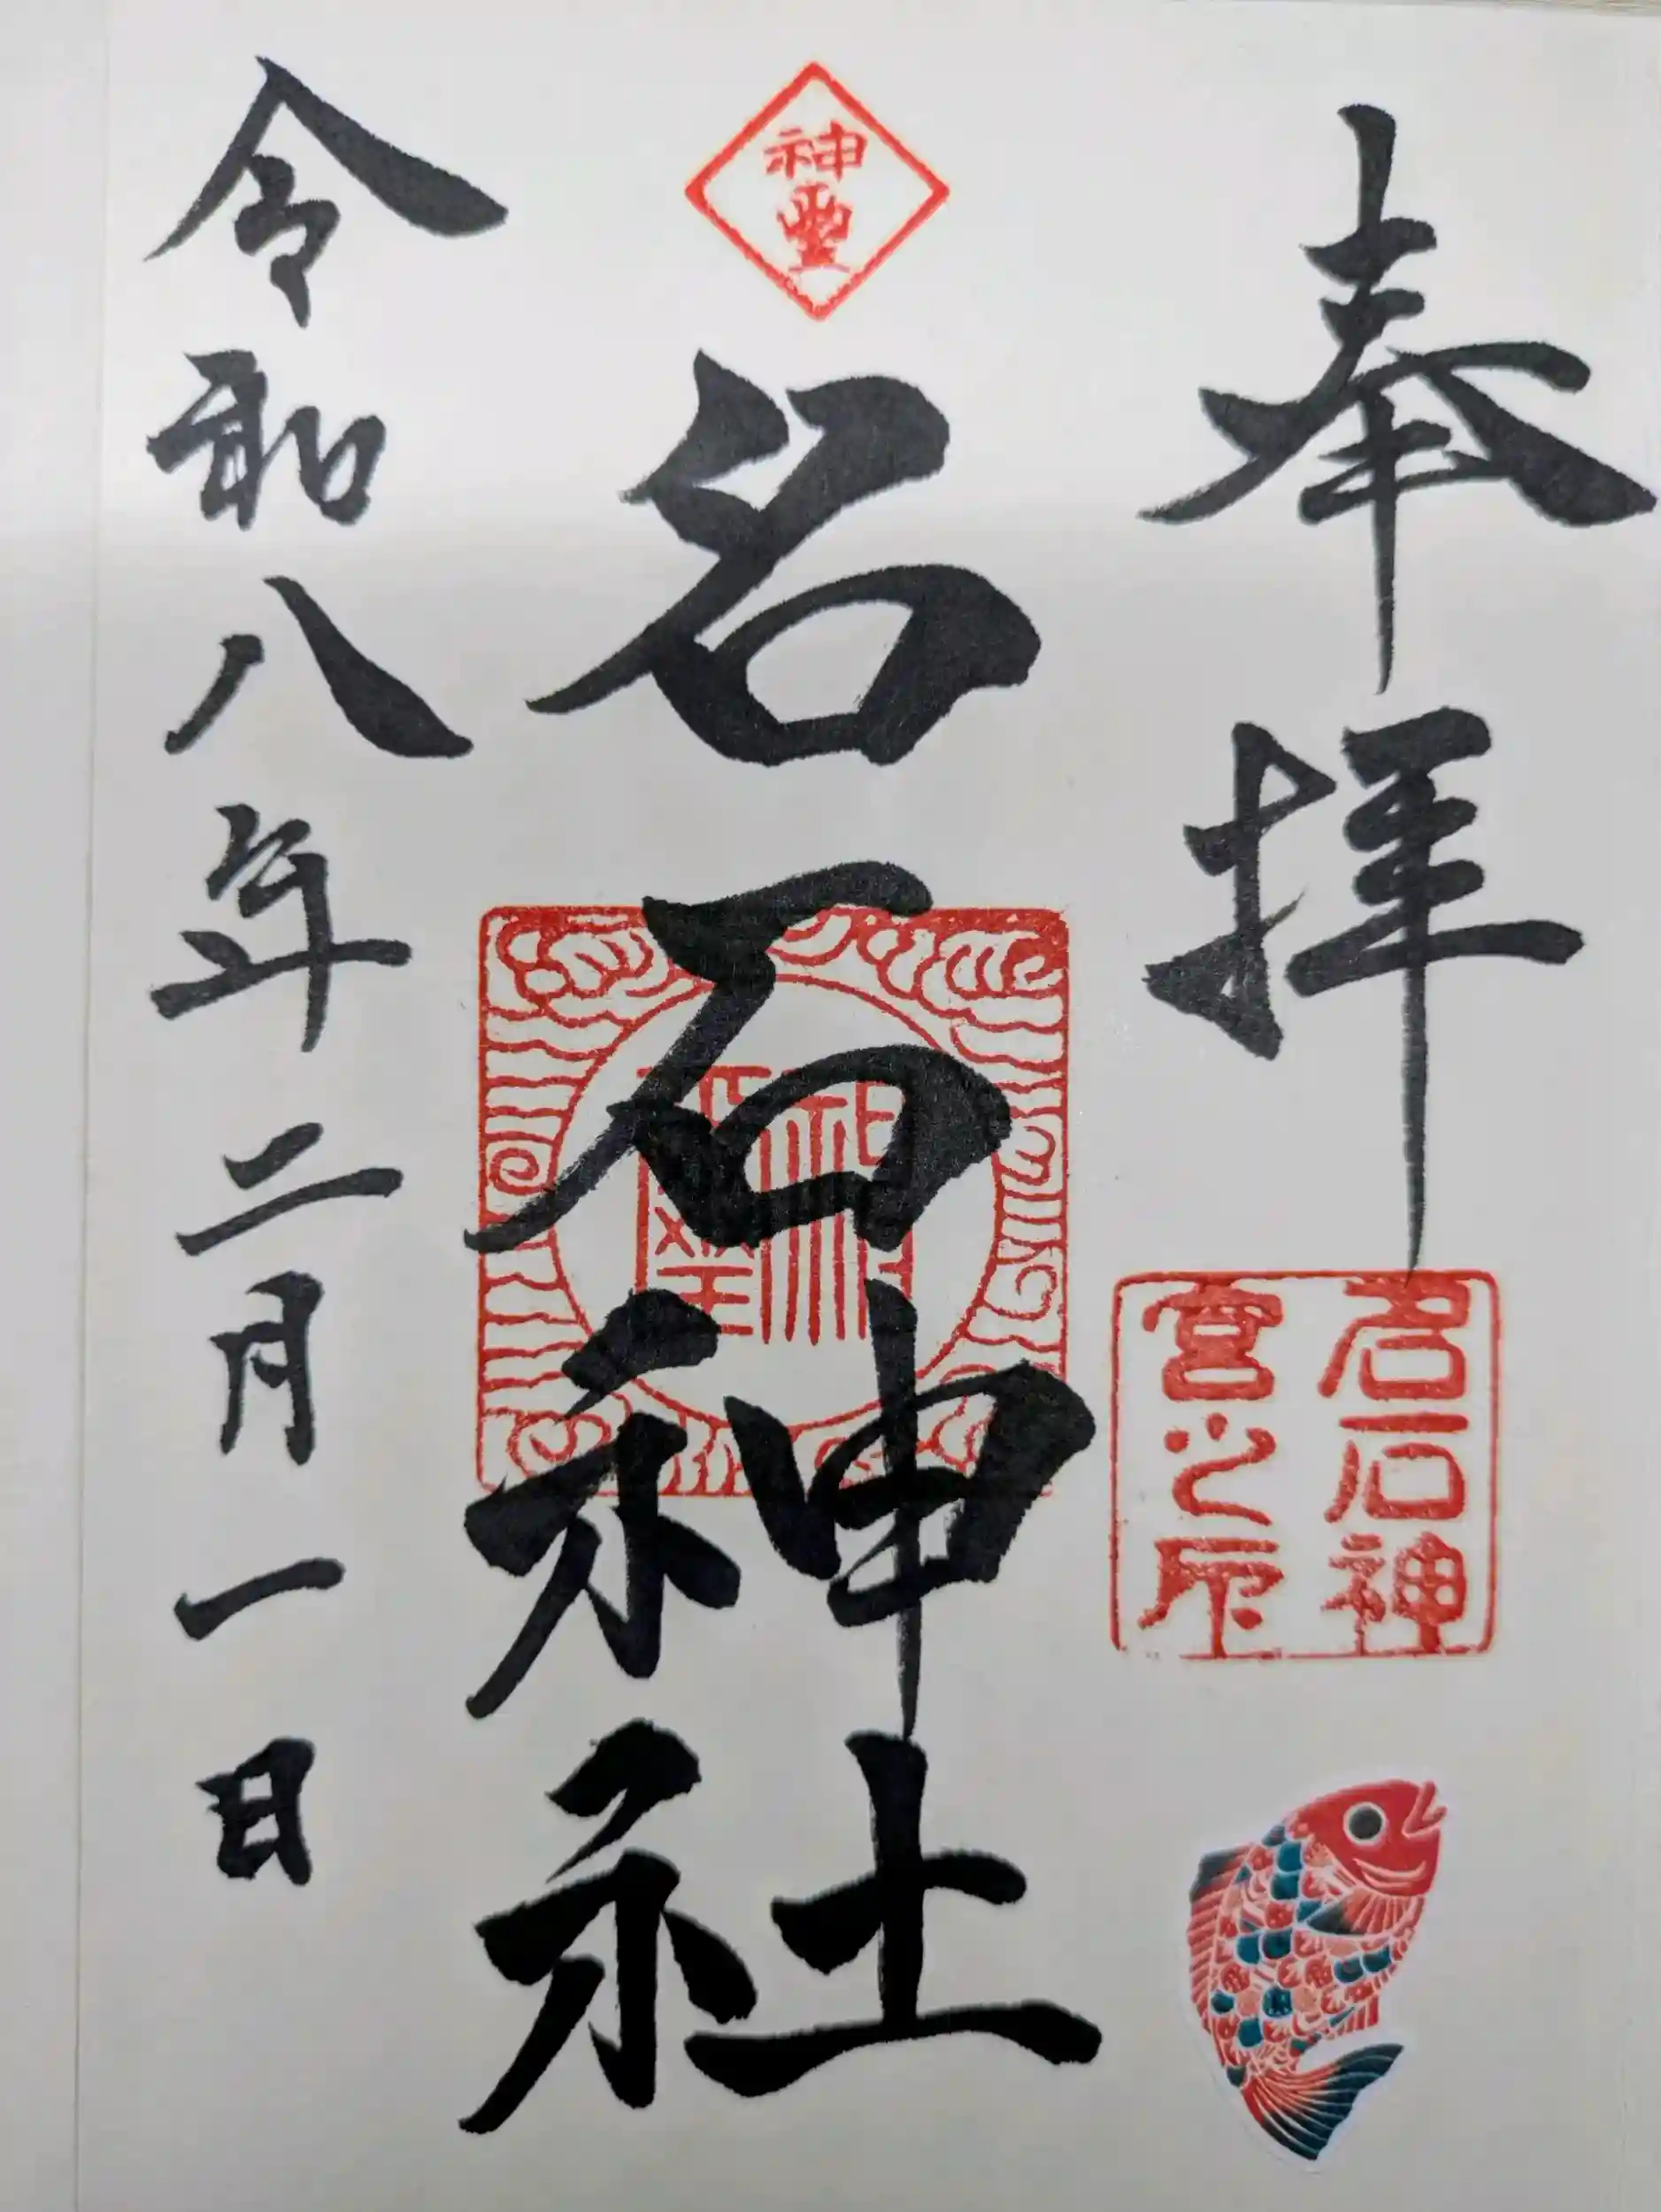 奉拝
名石神
宮之印
神璽
名石神社
神璽
令和八年二月一日